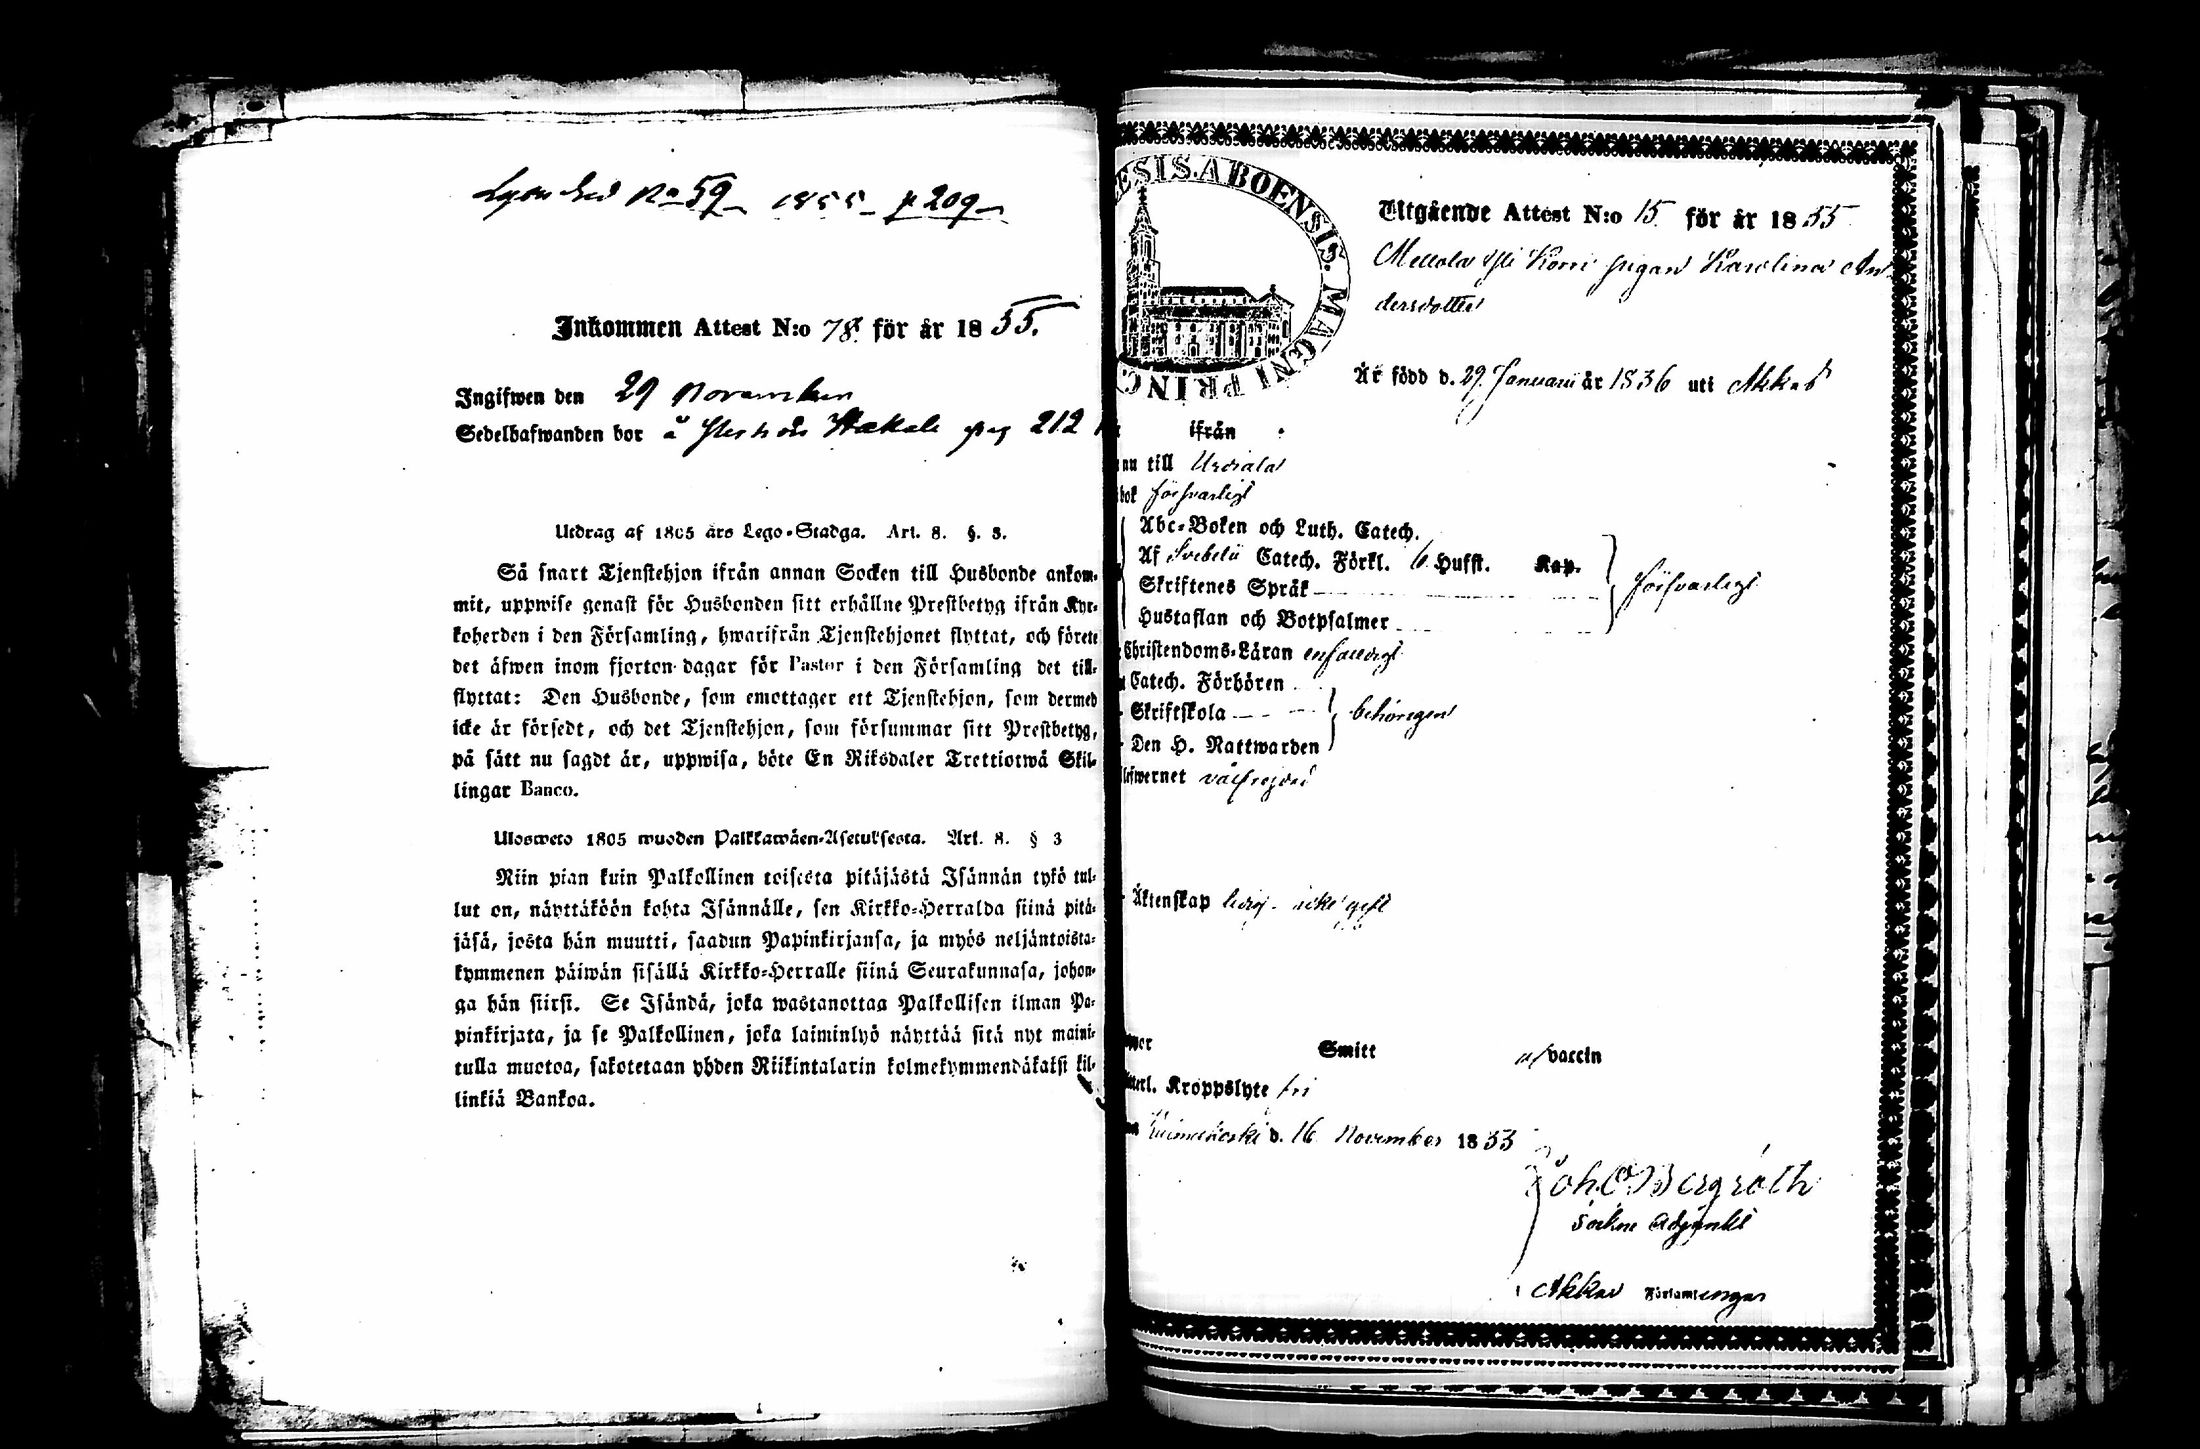 No 59 1855 p 209
Inkommen Attest N:o 78 för år 1855.
Ingifwen den 29 November
Sedelhafwanden bor å pag 212
Utdrag af 1805 års Lego-Stadga. Art. 8. §. 3.
Så snart Tjenstehjon ifrån annan Socken till Husbonde ankom-
mit, uppwise genast för Husbonden sitt erhållne Prestbetyg ifrån Kyr-
koherden i den Församling, hwarifrån Tjenstehjonet flyttat, och förete
det äfwen inom fjorton dagar för Pastor i den Församling det till-
flyttat: Den Husbonde, som emottager ett Tjenstehjon, som dermed
icke är försedt, och det Tjenstehjon, som försummar sitt Prestbetyg,
på sätt nu sagdt är, uppwisa, böte En Riksdaler Trettiotwå Skil-
lingar Banco.
Ulosweto 1805 wuoden Palkkawäen-Asetuksesta. Art. 8. § 3
Niin pian kuin Palkollinen toisesta pitäjästä Isännän tykö tul-
lut on, näyttäköön kohta Isännälle, sen Kirkko-Herralda siinä pitä-
jäsä, josta hän muutti, saadun Papinkirjansa, ja myös neljäntoista-
kymmenen päiwän sisällä Kirkko-Herralle siinä Seurakunnasa, johon-
ga hän siirsi. Se Isändä, joka wastanottaa Palkollisen ilman Pa-
pinkirjata, ja se Palkollinen, joka laiminlyö näyttää sitä nyt maini-
tulla muotoa, sakotetaan yhden Riikintalarin kolmekymmendäkaksi kil-
linkiä Bankoa.
ESIS. ABOENSIS. MAGNI PRINC
Utgående Attest N:o 15 för år 1855
Mellola Korri pigan Karolina An
dersdotter
Är född d. 29 Januarii år 1836 uti Akkas
ifrån
till Urdiala
bok försvarligt
Abc-Boken och Luth. Catech.
Af Svebelii Catech. Förkl. 6 Hufst. Kap.
Skriftenes Språk
försvarligt
Hustaflan och Botpsalmer
Christendoms-Läran enfaldigt
Catech. Förhören
Skriftskola
behörigen
Den H. Nattwarden
lefwernet välfrejdad
Äktenskap ledig icke gift
Smitt af vaccin
Kroppslyte fri
d. 16 November 1855
Joh. O Bergroth
Sockne Adjunkt
Akkas Församlingar